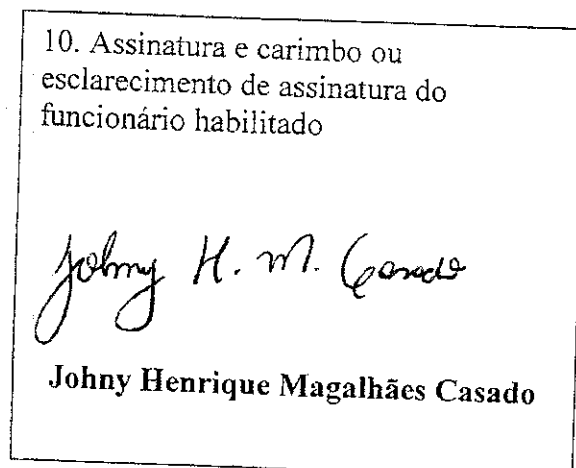 10. Assinatura e carimbo ou
esclarecimento de assinatura do
funcionário habilitado
Johny H. M. Casado
Johny Henrique Magalhães Casado